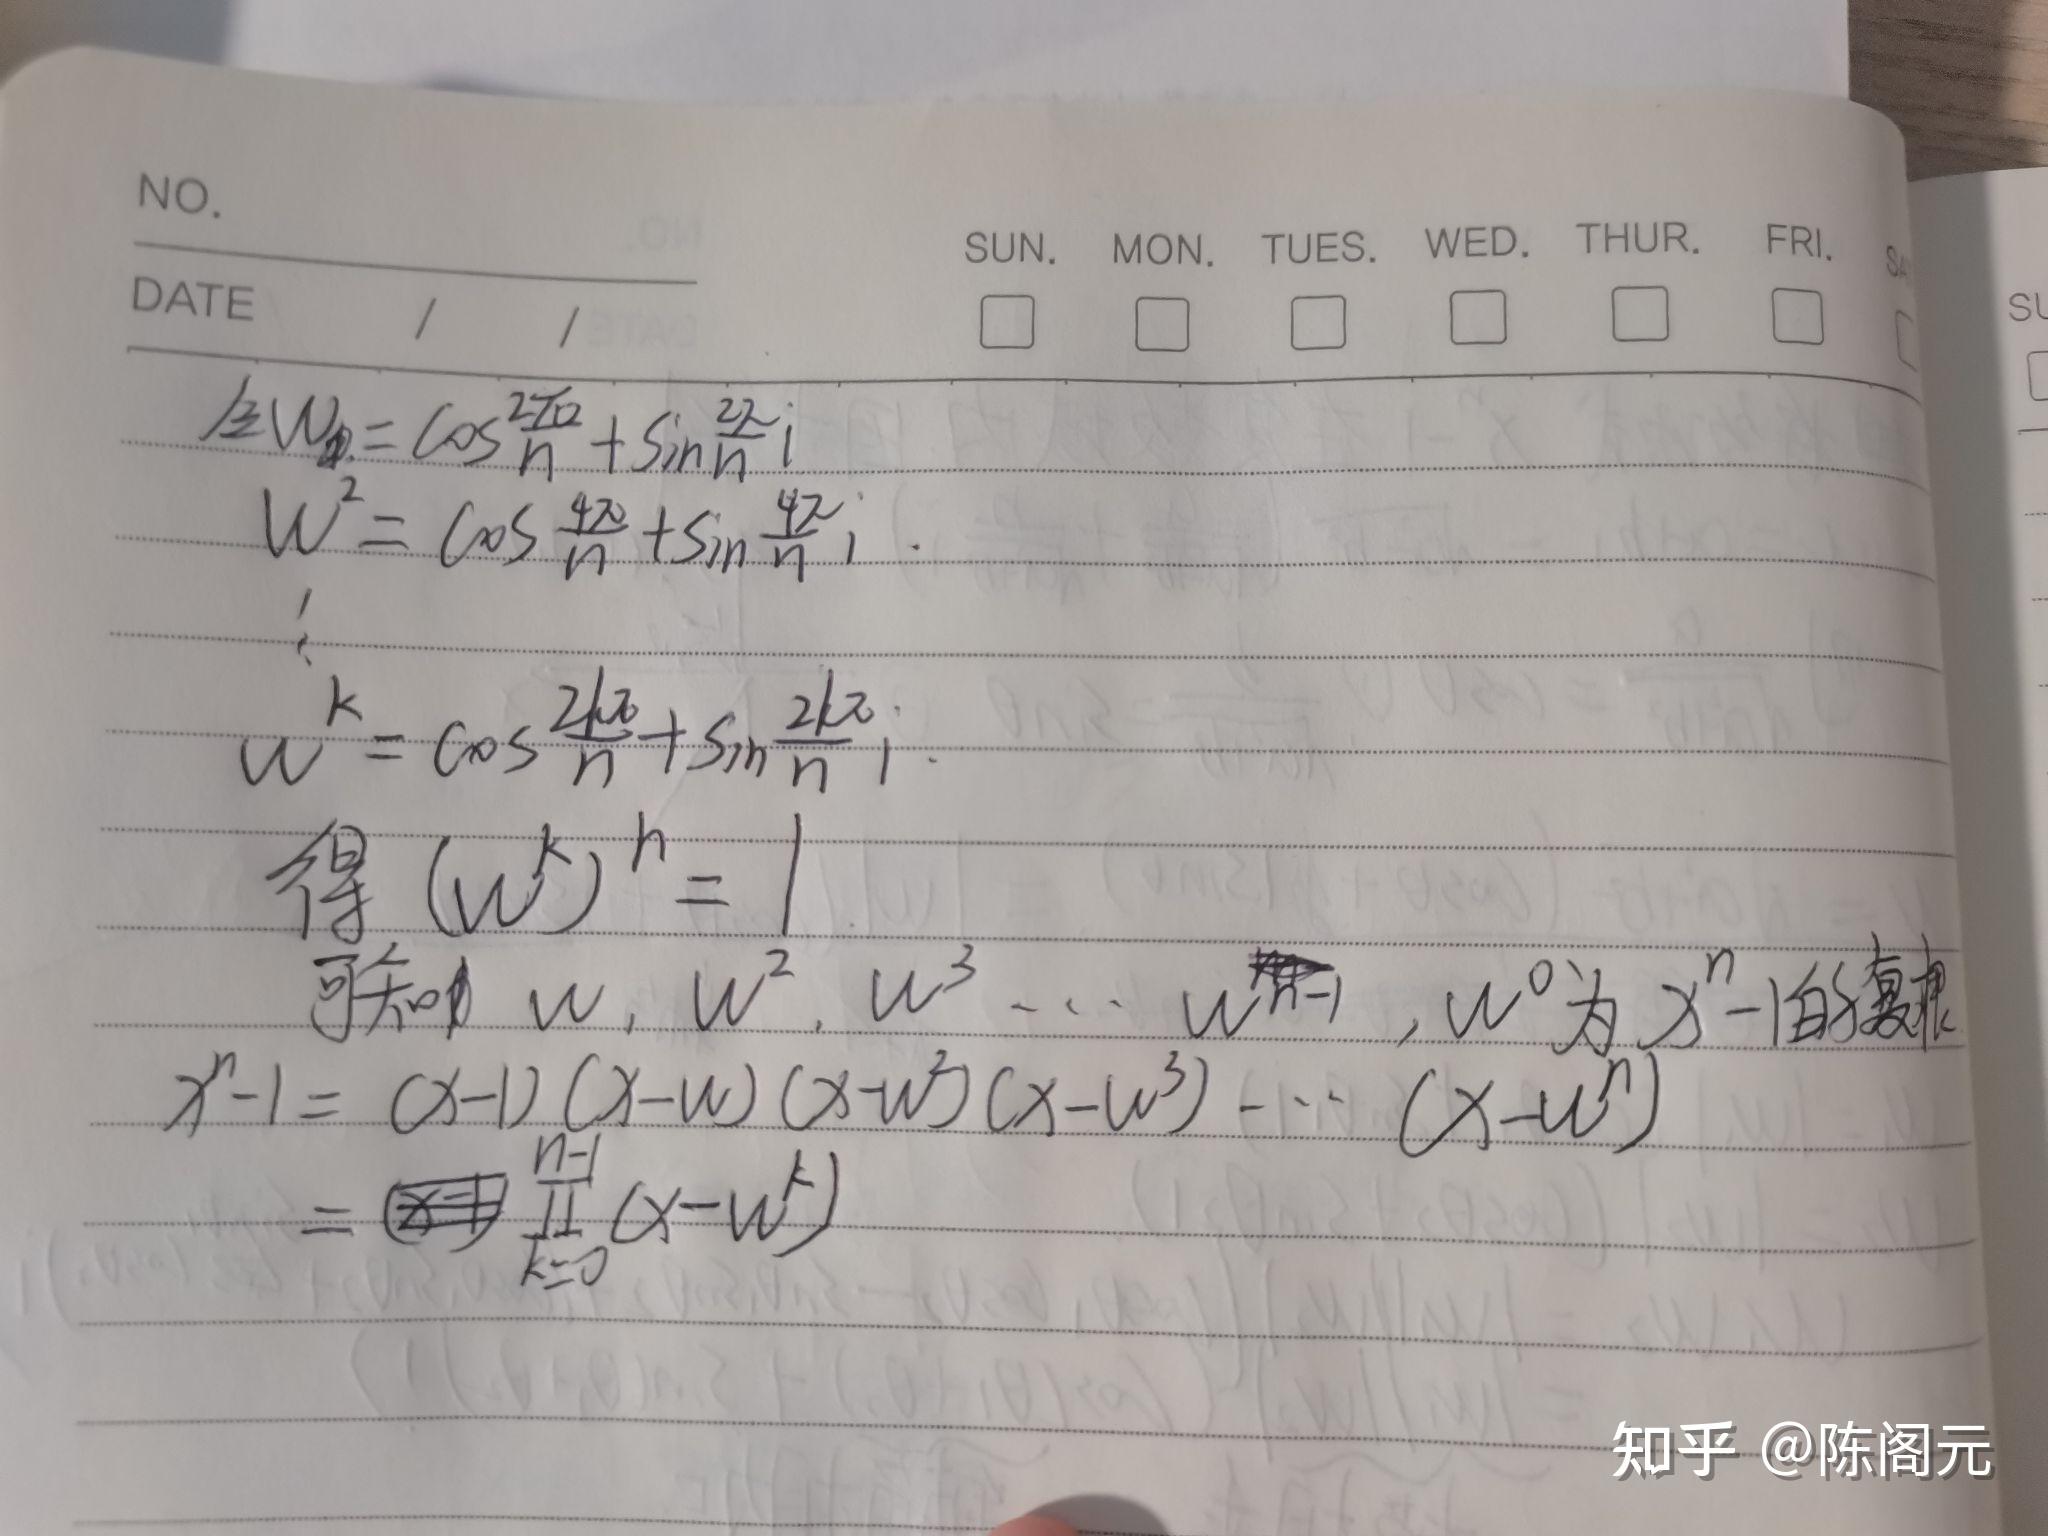 NO.
SUN. MON. TUES. WED. THUR. FRI. SA
DATE / /
SU
W = cos 2π/n + sin 2π/n i
W² = cos 4π/n + sin 4π/n i .
⋮
w^k = cos 2kπ/n + sin 2kπ/n i .
得 (w^k)^n = 1
可知 w, w², w³ …… w^(n-1), w⁰为 x^n-1的复根
x^n-1 = (x-1)(x-w)(x-w²)(x-w³) …… (x-w^n)
= ∏_{k=0}^{n-1} (x-w^k)
知乎 @陈阁元